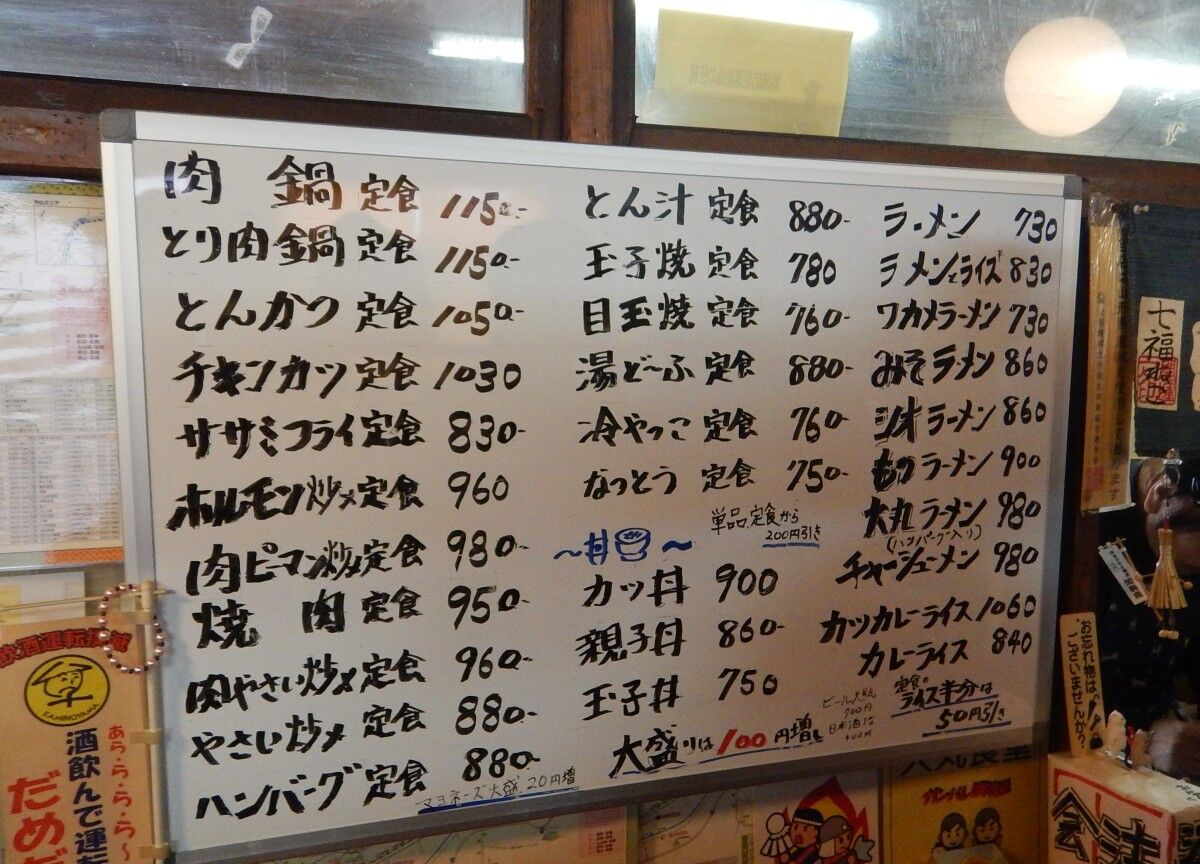 肉 鍋 定食 1150-
とり肉鍋 定食 1150-
とんかつ 定食 1050-
チキンカツ 定食 1030
ササミフライ定食 830-
ホルモン炒メ定食 960
肉ピーマン炒メ定食 980-
焼 肉 定食 950-
肉やさい炒メ定食 960-
やさい炒メ 定食 880-
ハンバーグ 定食 880-
マヨネーズ大盛 20円増
とん汁 定食 880-
玉子焼 定食 780
目玉焼 定食 760-
湯ど〜ふ 定食 880-
冷やっこ 定食 760-
なっとう 定食 750-
単品定食から
200円引き
〜丼〜
カツ丼 900
親子丼 860-
玉子丼 750
大盛りは100円増し
ビール大瓶
700円
日本酒は
ラーメン 730
ラーメンとライス 830
ワカメラーメン 730
みそラーメン 860
シオラーメン 860
もつラーメン 900
大丸ラーメン 980
(ハンバーグ入り)
チャーシューメン 980
カツカレーライス 1060
カレーライス 840
定食の
ライス半分は
50円引き
七福
お忘れ物は
ございませんか?
飲酒運転撲滅
SAMINOYAMA
あら・ら・ら・ら〜
酒飲んで運転
だめだ
会津